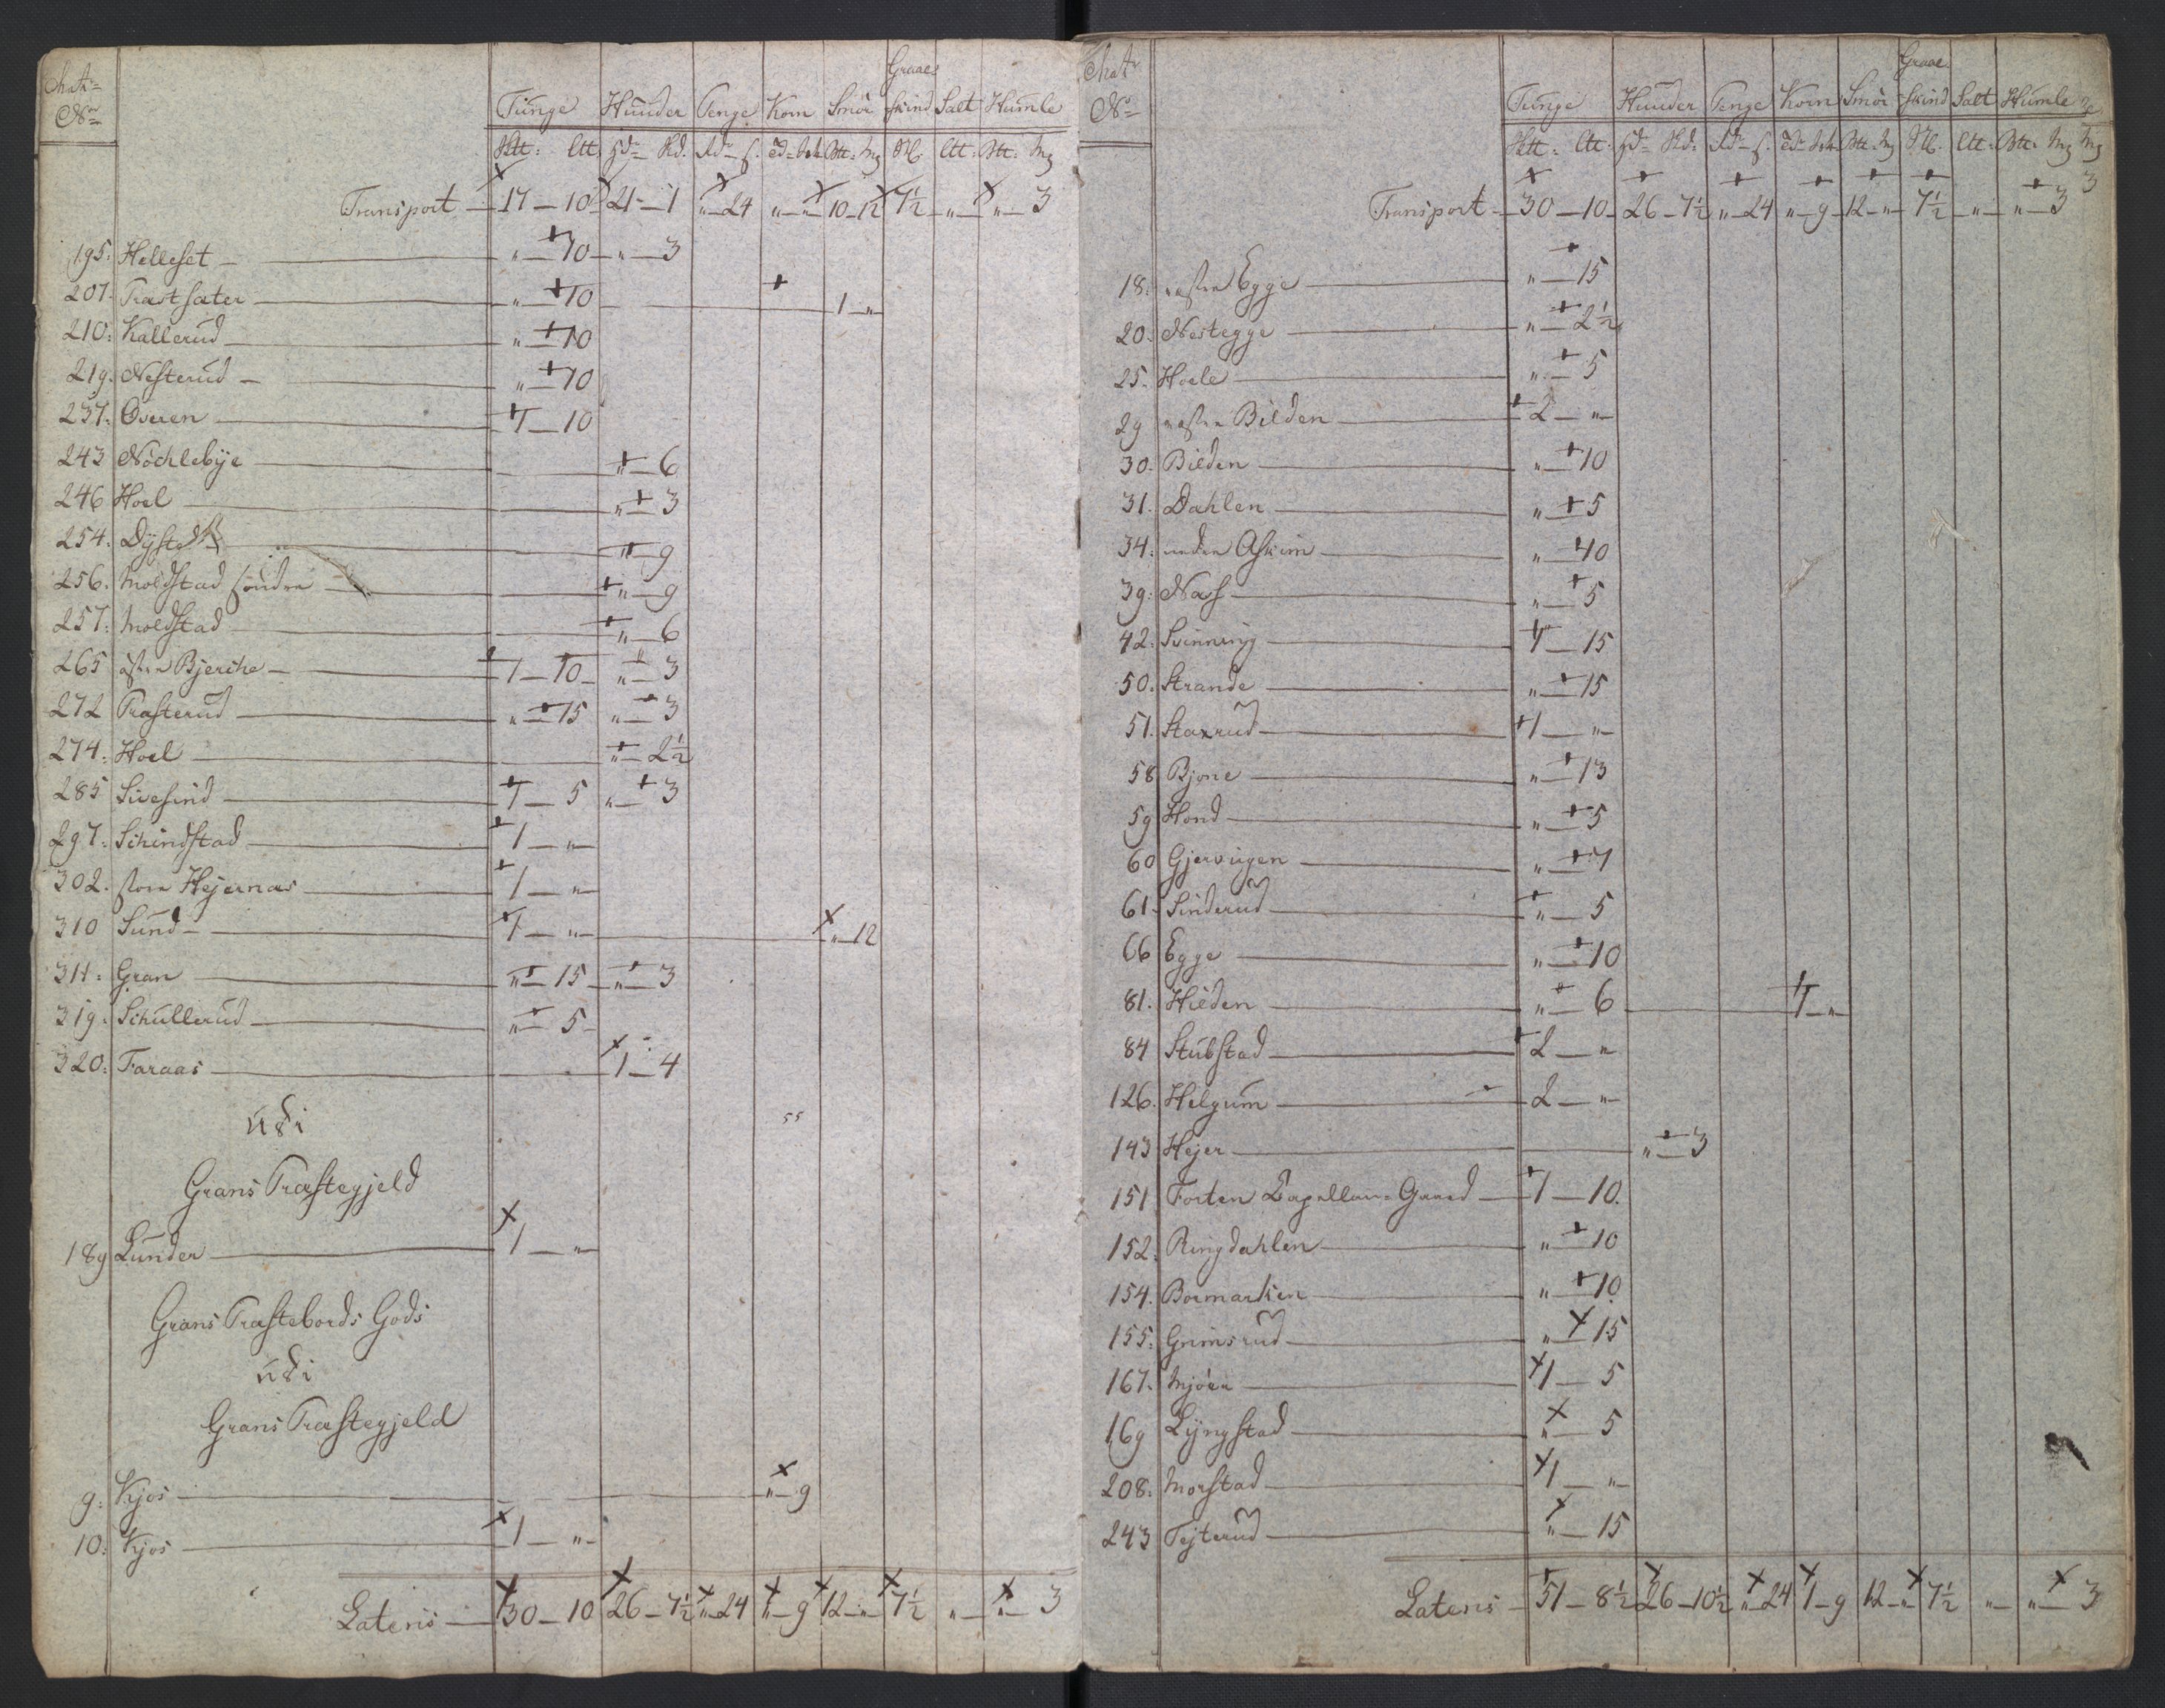 Matr: Tunge Huuder Penge Korn Smör Graae Skind Salt Humle
No Sktt: Ltt. Hd= Skd. Rd= s. Td= Sk Btt: Mg No. Ltt: Btt: Mg
Transport 17—10 21—1 "—24 "—" 10—12 7½ —"— "—3
195: Helleset "—10 "—3
207. Træstsæter "—10 1—"
210: Kallerud "—10
219. Nesterud "—10
237: Overen 1—10
243 Nöchlebÿe "—6
246 Hoel "—3
254. Dÿsted "—9
256. Moldstad söndre "—9
257: Moldstad "—6
265 östre Bjerche 1—10 "—3
272 Præsterud "—15 "—3
274: Hoel "—2½
285 Sivesind 1—5 "—3
297: Schindstad 1—"
302. store Hejernæs 1—"
310 Sund 1—" "—12
311: Gran "—15 "—3
319. Schullerud "—5
320: Faraas 1—4
udi
Grans Præstegjeld
189 Lunder 1—"
Grans Præstebords Gods
udi
Grans Præstegjeld
9: Kjos "—9
10: Kjos 1—"
Lateris 30—10 26—7½ "—24 "—9 12—" 7½ "— "—3
Matr Tunge Huuder Penge Korn Smör Graae Skind Salt Humle
No Sktt: Ltt. Hd= Skd: Rd= s. Td= Sk Btt: Mg No. Ltt: Btt: Mg
Transport 30—10 26—7½ "—24 "—9 12—" 7½ —"— "—3
18: vestre Egge "—15
20: Nestegge "—2½
25. Hoele "—5
29 vestre Bilden 2—"
30. Bilden "—10
31. Dahlen "—5
34: neder Askim "—10
39: Næs "—5
42: Svinning 1—15
50. Strande "—15
51. Staxrud 1—"
58 Bjone "—13
59 Hond "—5
60 Gjervingen "—7
61. Sinderud "—5
66 Egge "—10
81. Hilden "—6 1—"
84 Stubstad 2—"
126. Helgum 2—"
143 Hejer "—3
151 Forten Capellan=Gaard 1—10.
152: Ringdahlen "—10
154. Bormarken "—10
155: Grimsrud "—15
167. Mjöer 1—5
169 Lÿngstad "—5
208: Morstad 1—"
243 Tejterud "—15
Lateris 51—8½ 26—10½ "—24 1—9 12—" 7½ "— "—3